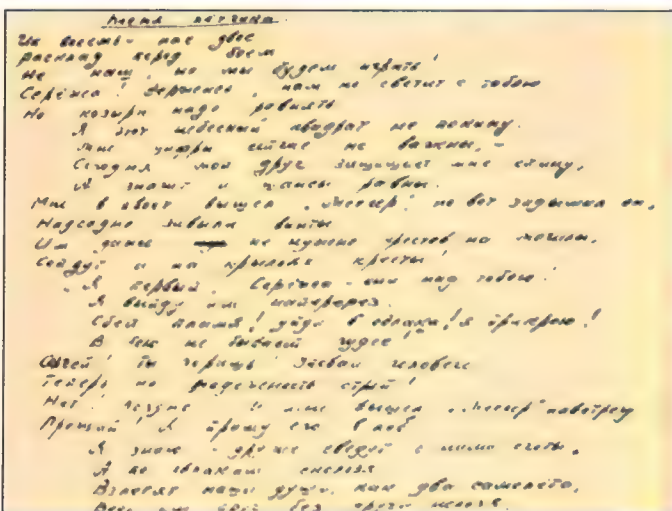 Песня летчика
Их восемь - нас двое
расклад перед боем
Не наш, но мы будем играть!
Серёжа! Держись, нам не светит с тобою
Но козыри надо равнять
Я этот небесный квадрат не покину.
Мне цифры сейчас не важны, -
Сегодня мой друг защищает мне спину,
А значит и шансы равны.
Мне в хвост вышел "мессер", но вот задымил он,
Надсадно завыли винты
Им даже не нужно крестов на могилы,
Сойдут и на крыльях кресты!
Я первый, Серёжа - они под тобою!
Я выйду им наперерез.
Сбей пламя! уйди в облака! я прикрою!
В бою не бывает чудес!
Сергей! Ты горишь! Уповай человече
Теперь на надежность строп!
Нет! поздно и мне вышел "мессер" навстречу
Прощай! Я приму его в лоб
Я знаю - другие сведут с ними счеты,
А по облакам скользя
Взлетят наши души, как два самолета,
Ведь им друг без друга нельзя.